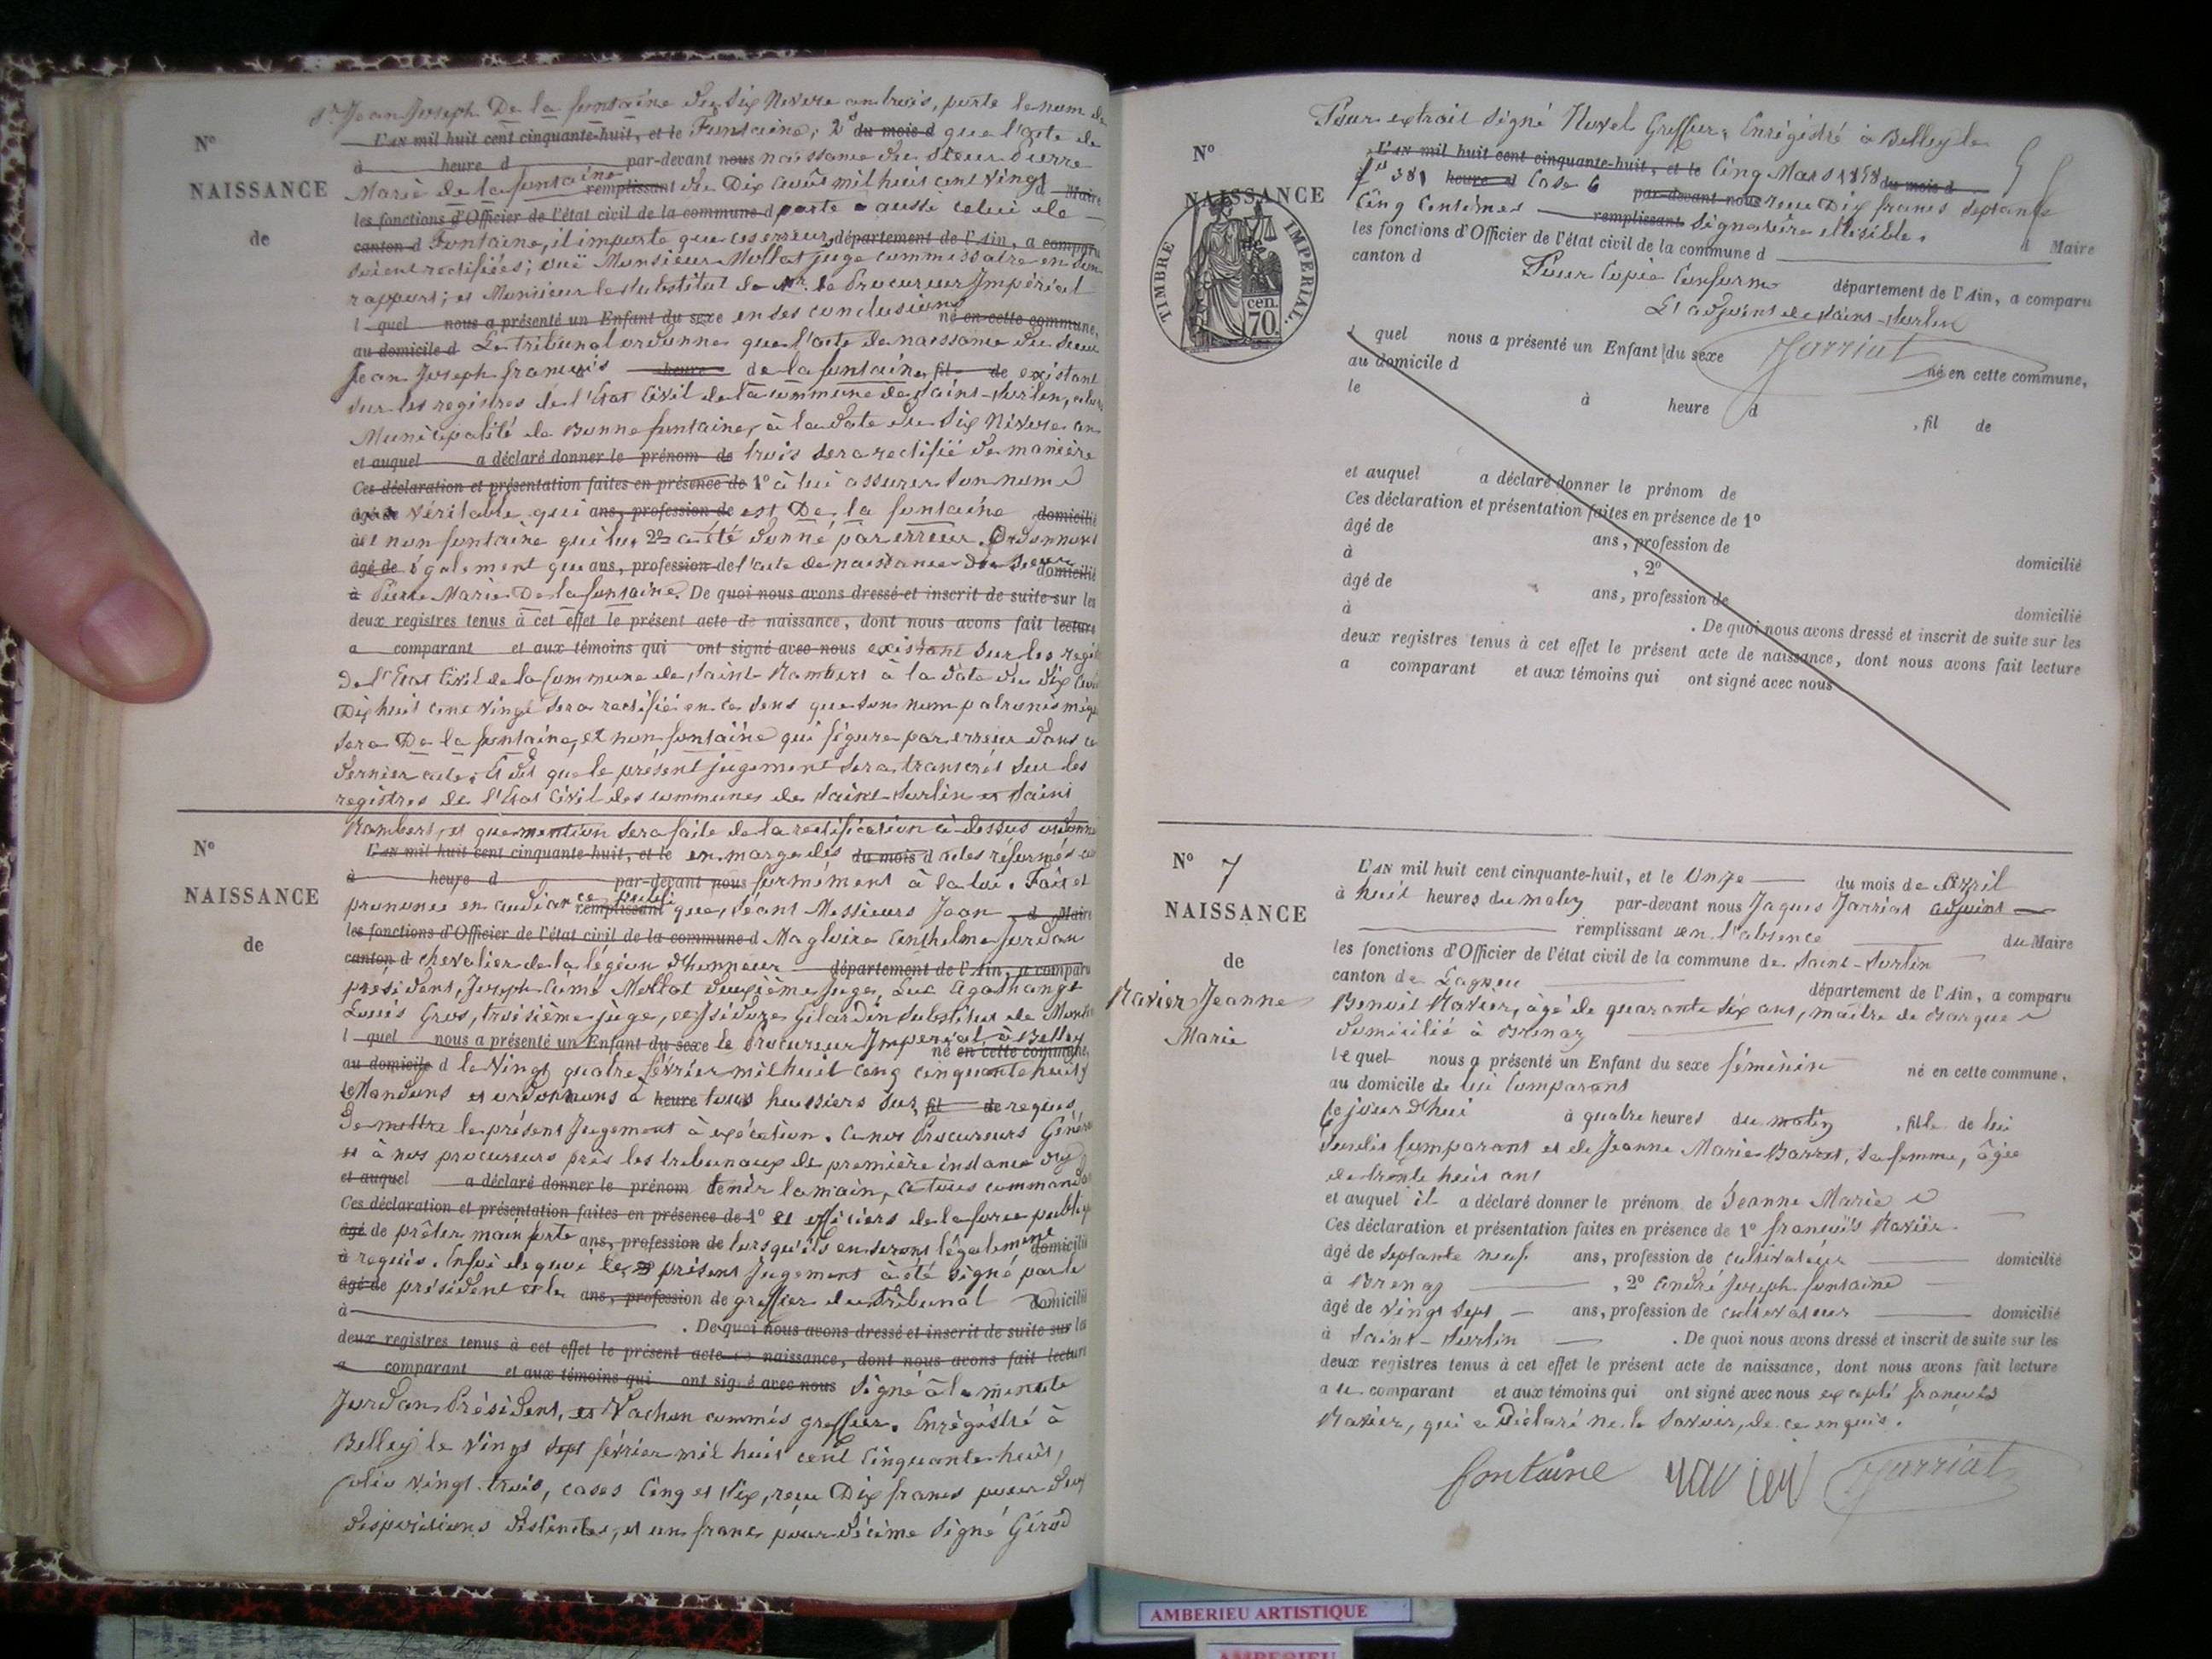 Sr Jean Joseph De la fontaine du Six Nivose an trois, porte le nom de
N°
L'AN mil huit cent cinquante-huit, et le Fontaine; 2° du mois d que l'acte de
à heure d par-devant nous naissance du Sieur Pierre
NAISSANCE
Marie de la fontaine remplissant du Dix Août mil huit cent Vingt d Maire
les fonctions d'Officier de l'état civil de la commune d porte aussi celui de
de
canton d Fontaine, il importe que ces erreurs département de l'Ain, a comparu
soient rectifiées; ouï Monsieur Mollat juge commissaire en son
rapport; et Monsieur le Substitut de Mr. le Procureur Impérial
l quel nous a présenté un Enfant du sexe en ses conclusions né en cette commune,
au domicile d Le tribunal ordonne que l'acte de naissance du Sieur
Jean Joseph françois heure de la fontaine, fil de existant
sur les registres de l'Etat Civil de la commune de Saint-Sorlin,
Municipalité de Bonne fontaine, à la date du Six Nivose an
et auquel a déclaré donner le prénom de trois sera rectifié de manière
Ces déclaration et présentation faites en présence de 1° à lui assurer son nom
âgé de véritable qui ans, profession de est De la fontaine domicilié
à et non fontaine qui lui 2° a été donné par erreur. Ordonnons
âgé de également que ans, profession de l'acte de naissance du Sieur domicilié
à Pierre Marie De la fontaine. De quoi nous avons dressé et inscrit de suite sur les
deux registres tenus à cet effet le présent acte de naissance, dont nous avons fait lecture
a comparant et aux témoins qui ont signé avec nous existant sur les regis
De l'Etat Civil de la Commune de Saint-Rambert à la date du dix Août
Dix huit cent Vingt sera rectifié en ce sens que son nom patronimique
sera De la fontaine, et non fontaine qui figure par erreur dans ce
dernier acte. Et dit que le présent jugement sera transcrit sur les
registres de l'Etat Civil des communes de Saint-Sorlin et Saint
Rambert, et que mention sera faite de la rectification ci-dessus ordonnée
N°
L'AN mil huit cent cinquante-huit, et le en marge des du mois d actes réformés
à heure d par-devant nous formément à la loi. Fait et
NAISSANCE
prononcé en audience publi remplissant que, séant Messieurs Jean d Maire
les fonctions d'Officier de l'état civil de la commune d Magloire Anthelme Jordan
de
canton d chevalier de la légion d'honneur département de l'Ain, a comparu
président, Joseph Mollat deuxième juge, Luc Agathange
Louis Gros, troisième juge, et Isidore Gilardin substitut de
l quel nous a présenté un Enfant du sexe le Procureur Impérial, à Belley né en cette commune,
au domicile d le Vingt quatre février mil huit cent cinquante huit
Mandons et ordonnons à heure tous huissiers sur fil de requis
De mettre le présent Jugement à exécution. A nos Procureurs Géné
et à nos procureurs près les tribunaux de première instance d'y
et auquel a déclaré donner le prénom tenir la main, A tous commanda
Ces déclaration et présentation faites en présence de 1° et officiers de la force publique
âgé de prêter main forte ans, profession de lorsqu'ils en seront légalement domicilié
à requis. En foi de quoi le présent Jugement a été signé par le
âgé de président et le ans, profession de greffier du Tribunal domicilié
à . De quoi nous avons dressé et inscrit de suite sur les
deux registres tenus à cet effet le présent acte de naissance, dont nous avons fait lecture
a comparant et aux témoins qui ont signé avec nous Signé à la minute
Jordan Président, et Vachon commis greffier. Enrégistré à
Belley le Vingt Sept février mil huit cent Cinquante huit,
folio vingt trois, cases Cinq et Six, reçu Dix francs pour deux
dispositions distinctes, et un franc pour décime Signé Girod
Pour extrait Signé Greffier, Enrégistré à Belley le
N°
L'AN mil huit cent cinquante-huit, et le Cinq Mars 1858 du mois d
f° 381 heure d Case 6 par-devant nous reçu Dix francs septante
NAISSANCE
Cinq Centimes remplissant Signature illisible. d Maire
les fonctions d'Officier de l'état civil de la commune d
de
canton d Pour Copie Conforme département de l'Ain, a comparu
TIMBRE IMPERIAL.
cen. 70.
L'adjoint de Saint-Sorlin
l quel nous a présenté un Enfant du sexe Jarriat né en cette commune,
au domicile d
le à heure d , fil de
et auquel a déclaré donner le prénom de
Ces déclaration et présentation faites en présence de 1°
âgé de ans, profession de domicilié
à , 2°
âgé de ans, profession de domicilié
à . De quoi nous avons dressé et inscrit de suite sur les
deux registres tenus à cet effet le présent acte de naissance, dont nous avons fait lecture
a comparant et aux témoins qui ont signé avec nous
N° 7
L'AN mil huit cent cinquante-huit, et le Onze du mois de Avril
à huit heures du matin par-devant nous Jaques Jarriat adjoint
NAISSANCE
remplissant en l'absence du Maire
les fonctions d'Officier de l'état civil de la commune de Saint-Sorlin
de
canton de Lagnieu département de l'Ain, a comparu
Ravier Jeanne
Marie
Benoit Ravier, âgé de quarante six ans, maître de Barque
domicilié à Brenaz
lequel nous a présenté un Enfant du sexe féminin né en cette commune,
au domicile de lui Comparant
le jourd'hui à quatre heures du matin , fille de lui
Susdit Comparant et de Jeanne Marie Barrot, sa femme, âgée
de trente huit ans
et auquel il a déclaré donner le prénom de Jeanne Marie
Ces déclaration et présentation faites en présence de 1° françois Ravier
âgé de septante neuf ans, profession de cultivateur domicilié
à Brenaz , 2° André Joseph fontaine
âgé de Vingt Sept ans, profession de cultivateur domicilié
à Saint-Sorlin . De quoi nous avons dressé et inscrit de suite sur les
deux registres tenus à cet effet le présent acte de naissance, dont nous avons fait lecture
au comparant et aux témoins qui ont signé avec nous excepté françois
Ravier, qui a Déclaré ne le Savoir, de ce enquis.
fontaine ravier Jarriat
AMBERIEU ARTISTIQUE
AMBERIEU